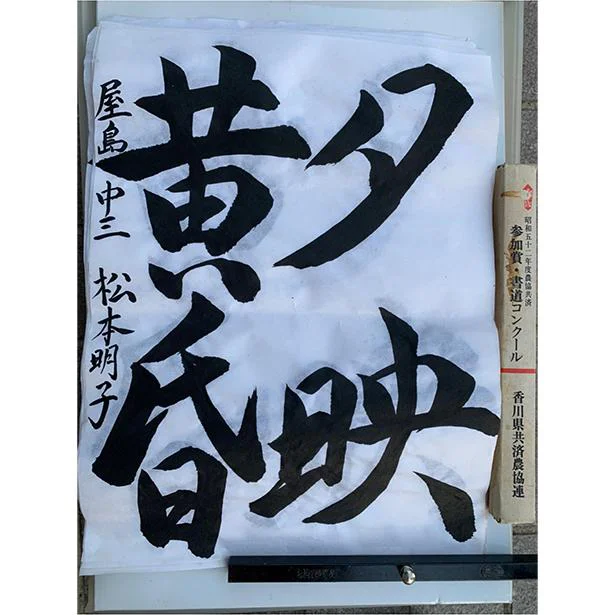 夕映
黄昏
屋島中三 松本明子
昭和五十二年度農協共済
参加賞・書道コンクール
香川県共済農協連